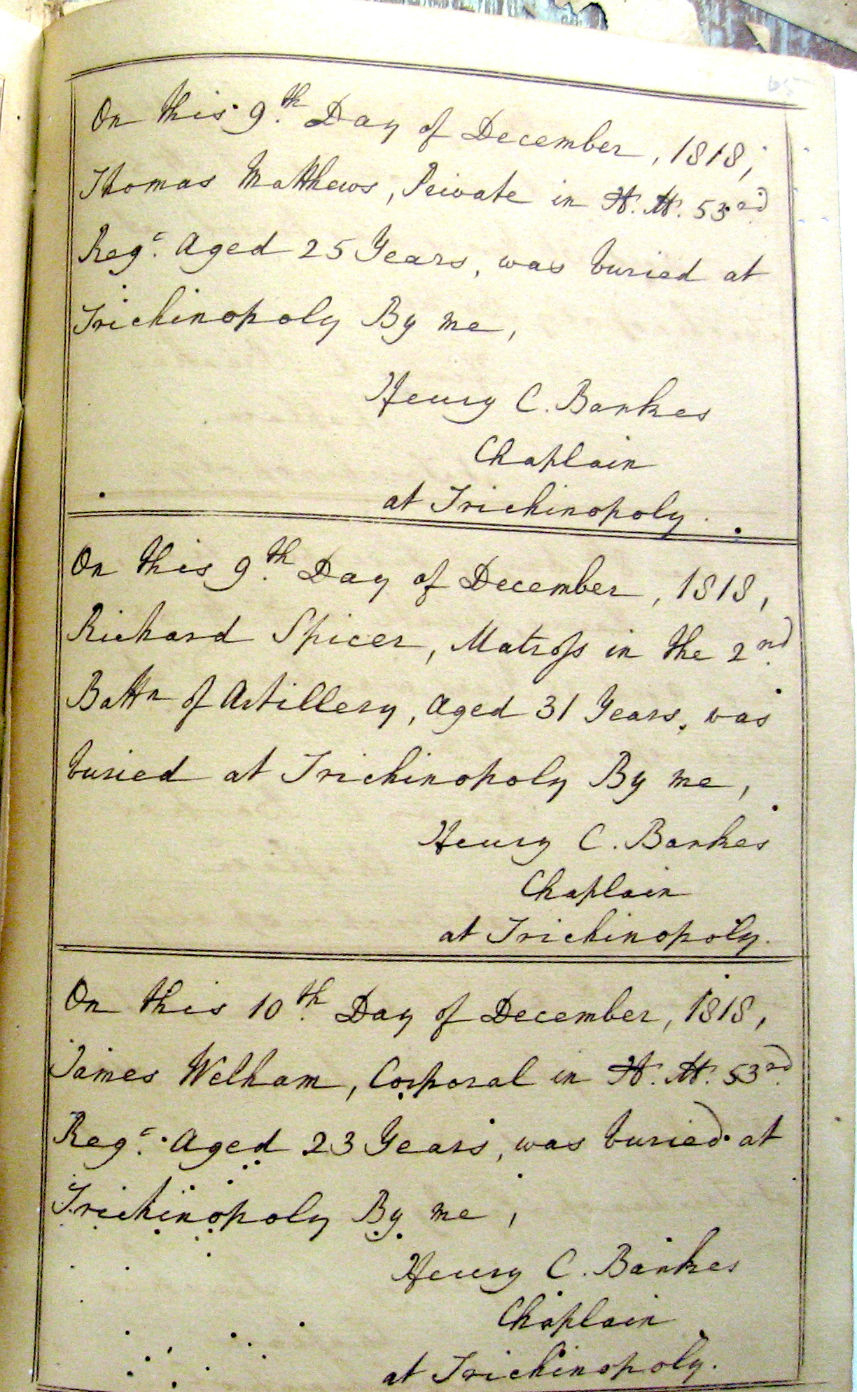 65
On this 9th Day of December, 1818,
Thomas Matthews, Private in H. M. 53rd
Regt. Aged 25 Years, was buried at
Trichinopoly By me,
Henry C. Bankes
Chaplain
at Trichinopoly.
On this 9th Day of December, 1818,
Richard Spicer, Matross in the 2nd
Battn of Artillery, Aged 31 Years, was
buried at Trichinopoly By me,
Henry C. Bankes
Chaplain
at Trichinopoly.
On this 10th Day of December, 1818,
James Welham, Corporal in H. M. 53rd
Regt. Aged 23 Years, was buried at
Trichinopoly By me,
Henry C. Bankes
Chaplain
at Trichinopoly.